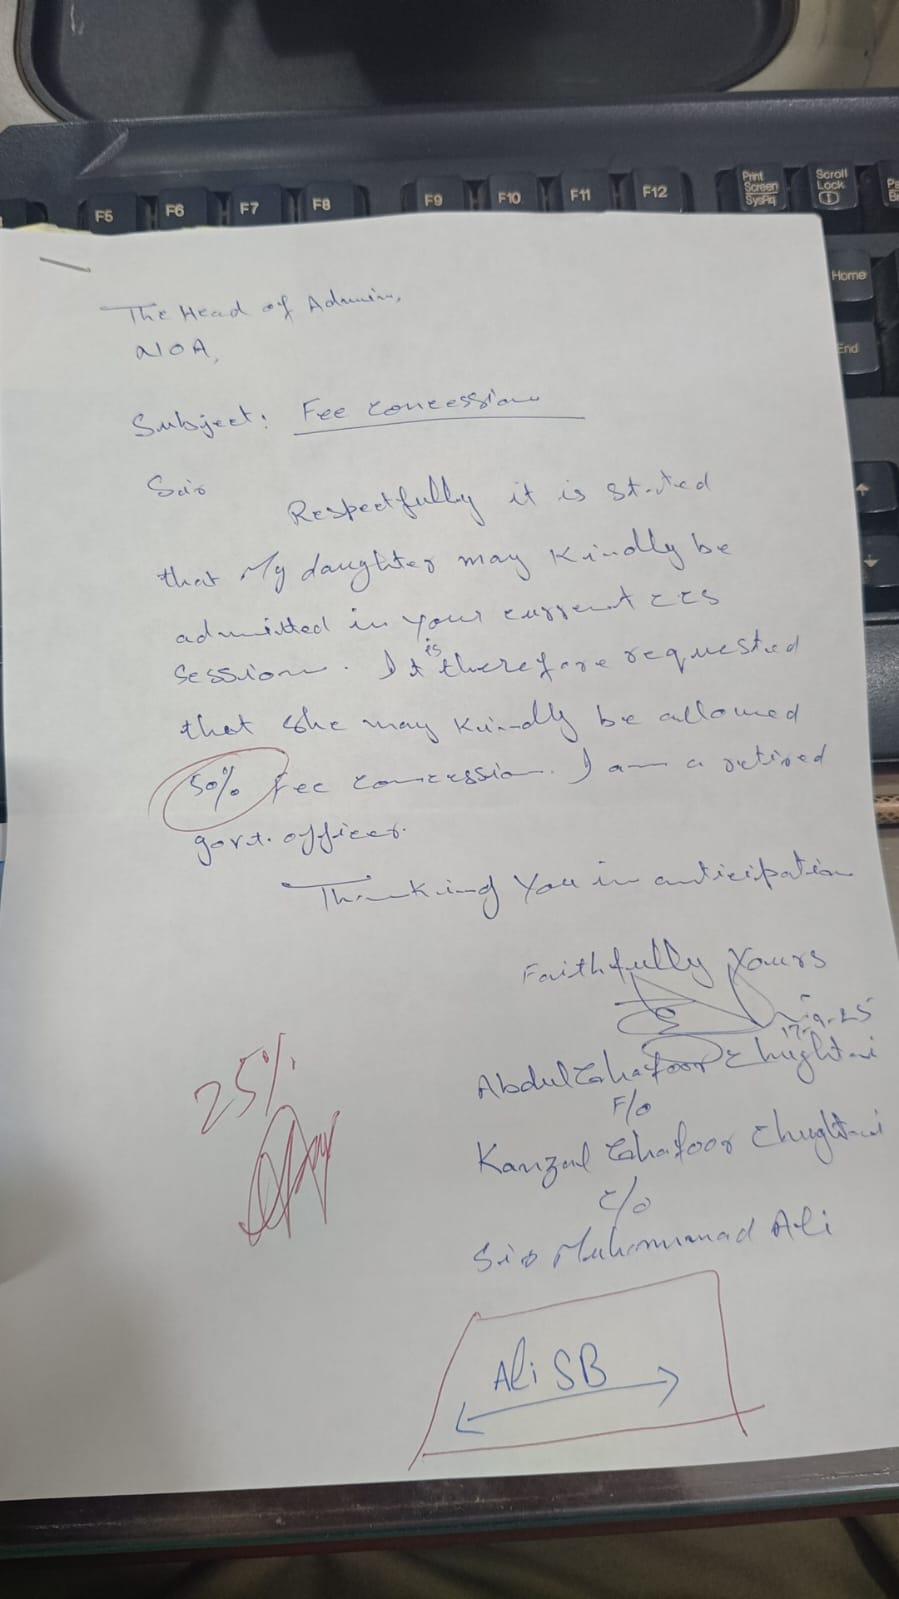 F5 F6 F7 F8 F9 F10 F11 F12 Print Screen SysRq Scroll Lock
Home
End
The Head of Admin,
NOA,
Subject: Fee concession
Sir
Respectfully it is stated
that My daughter may Kindly be
admitted in your current CCS
session. It is therefore requested
that She may Kindly be allowed
50% Fee concession. I am a retired
govt. officer.
Thanking You in anticipation
Faithfully Yours
17-9-25
Abdul Ghafoor Chughtai
F/o
Kanzal Ghafoor Chughtai
C/o
Sir Muhammad Ali
25%
Ali SB